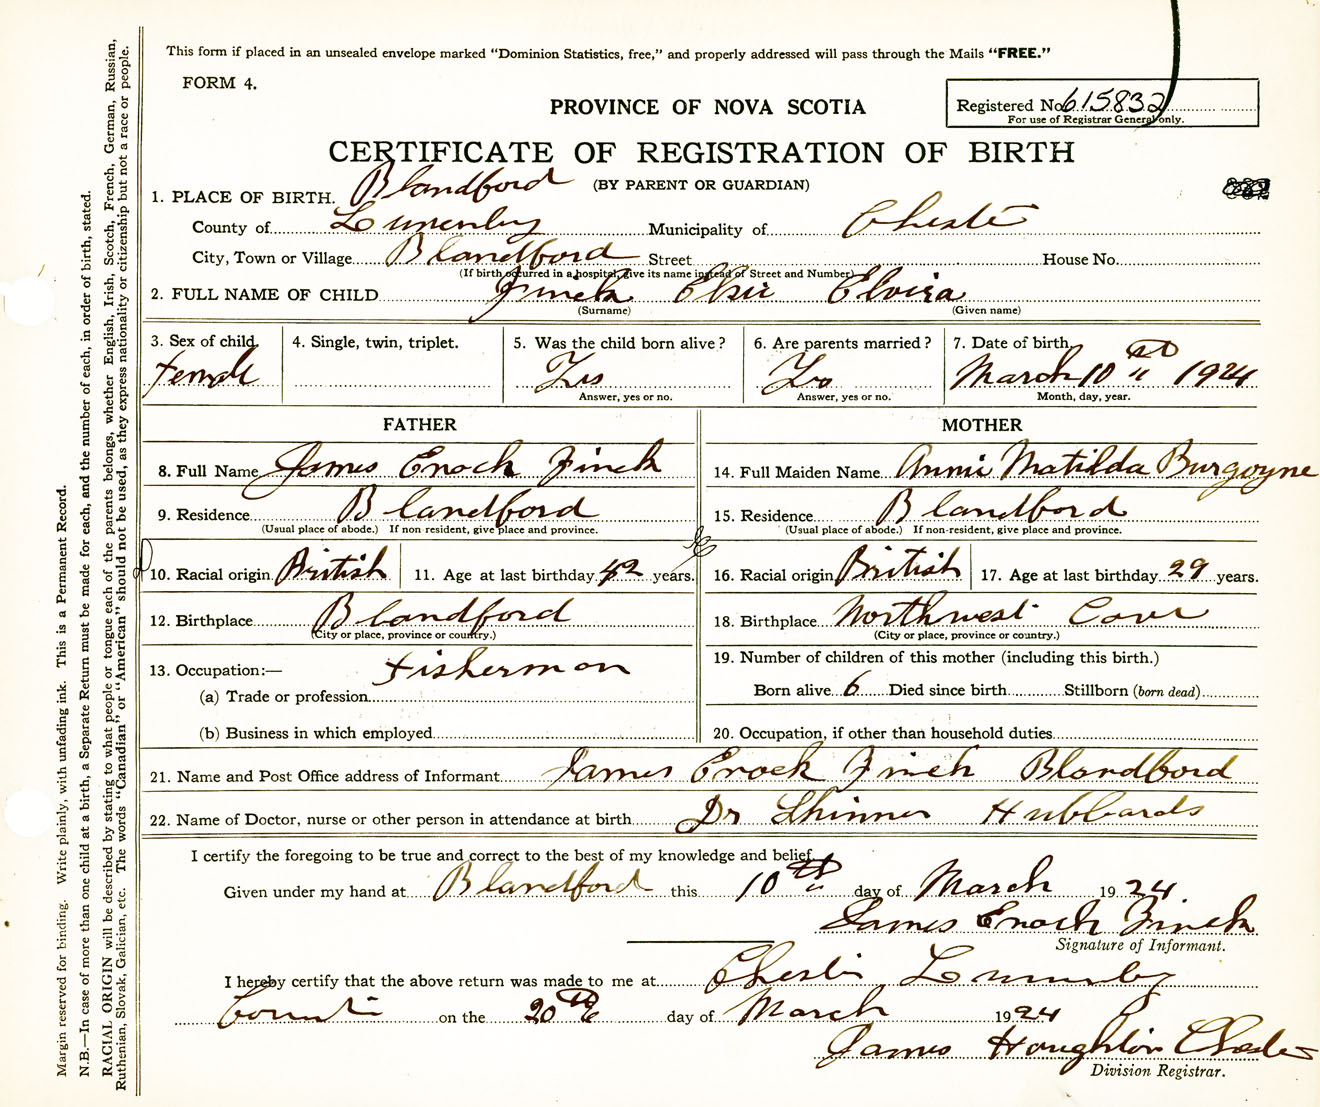 This form if placed in an unsealed envelope marked "Dominion Statistics, free," and properly addressed will pass through the Mails "FREE."
FORM 4.
PROVINCE OF NOVA SCOTIA
Registered No. 615832
For use of Registrar General only.
CERTIFICATE OF REGISTRATION OF BIRTH
(BY PARENT OR GUARDIAN)
1. PLACE OF BIRTH. Blandford
County of Lunenburg Municipality of Chester
City, Town or Village Blandford Street House No.
(If birth occurred in a hospital, give its name instead of Street and Number)
2. FULL NAME OF CHILD Finck Elsie Elvira
(Surname) (Given name)
3. Sex of child. 4. Single, twin, triplet. 5. Was the child born alive? 6. Are parents married? 7. Date of birth.
Female Yes Yes March 10th 1924
Answer, yes or no. Answer, yes or no. Month, day, year.
FATHER MOTHER
8. Full Name James Enoch Finck 14. Full Maiden Name Annie Matilda Burgoyne
9. Residence Blandford 15. Residence Blandford
(Usual place of abode.) If non-resident, give place and province. (Usual place of abode.) If non-resident, give place and province.
10. Racial origin British 11. Age at last birthday 42 years. 16. Racial origin British 17. Age at last birthday 29 years.
12. Birthplace Blandford 18. Birthplace Northwest Cove
(City or place, province or country.) (City or place, province or country.)
13. Occupation:— Fisherman 19. Number of children of this mother (including this birth.)
(a) Trade or profession Born alive 6 Died since birth Stillborn (born dead)
(b) Business in which employed 20. Occupation, if other than household duties
21. Name and Post Office address of Informant James Enoch Finck Blandford
22. Name of Doctor, nurse or other person in attendance at birth Dr Skinner Hubbards
I certify the foregoing to be true and correct to the best of my knowledge and belief.
Given under my hand at Blandford this 10th day of March 1924
James Enoch Finck
Signature of Informant.
I hereby certify that the above return was made to me at Chester Lunenburg
County on the 20th day of March 1924
James Houghton Chester
Division Registrar.
Margin reserved for binding. Write plainly, with unfading ink. This is a Permanent Record.
N.B.—In case of more than one child at a birth, a Separate Return must be made for each, and the number of each, in order of birth, stated.
RACIAL ORIGIN will be described by stating to what people or tongue each of the parents belongs, whether English, Irish, Scotch, French, German, Russian,
Ruthenian, Slovak, Galician, etc. The words "Canadian" or "American" should not be used, as they express nationality or citizenship but not a race or people.